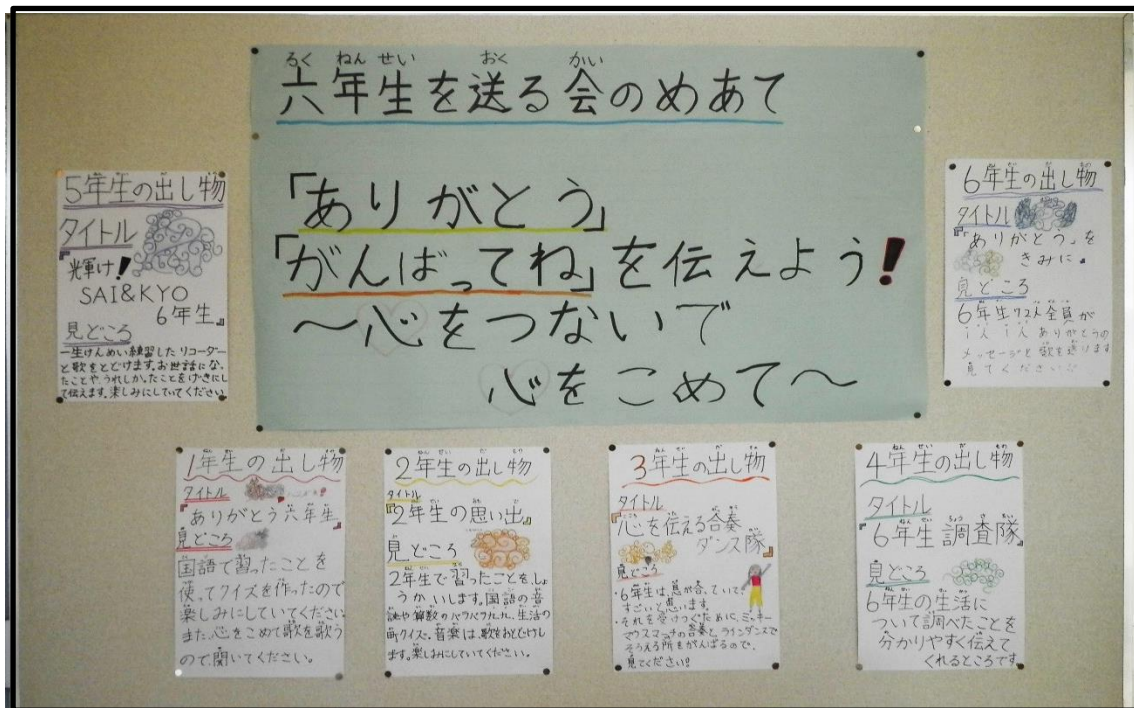 六年生を送る会のめあて
「ありがとう」
「がんばってね」を伝えよう!
～心をつないで
心をこめて～
5年生の出し物
タイトル
『輝け!
SAI&KYO
6年生』
見どころ
一生けんめい練習したリコーダー
と歌をとどけます。お世話になっ
たことや、うれしかったことをげきにし
て伝えます。楽しみにしていてください
6年生の出し物
タイトル
『「ありがとう」を
きみに』
見どころ
6年生72人全員が
1人1人ありがとうの
メッセージと歌を送ります
見てください!!
1年生の出し物
タイトル
『ありがとう六年生』
見どころ
国語で習ったことを
使ってクイズを作ったので
楽しみにしていてください
また、心をこめて歌を歌う
ので聞いてください。
2年生の出し物
タイトル
『2年生の思い出』
見どころ
2年生で習ったことを、しょ
うかいします。国語の音
読や算数の九九、生活の
町クイズ。音楽は、歌をおとどけし
ます。楽しみにしていてください。
3年生の出し物
タイトル
『心を伝える合奏
ダンス隊』
見どころ
・6年生は、息が合っていて
すごいと思います。
・それを受けつぐために、ミッキー
マウスマーチの合奏とラインダンスで
そろえる所をがんばるので、
見てください!
4年生の出し物
タイトル
『6年生調査隊』
見どころ
6年生の生活に
ついて調べたことを
分かりやすく伝えて
くれるところです